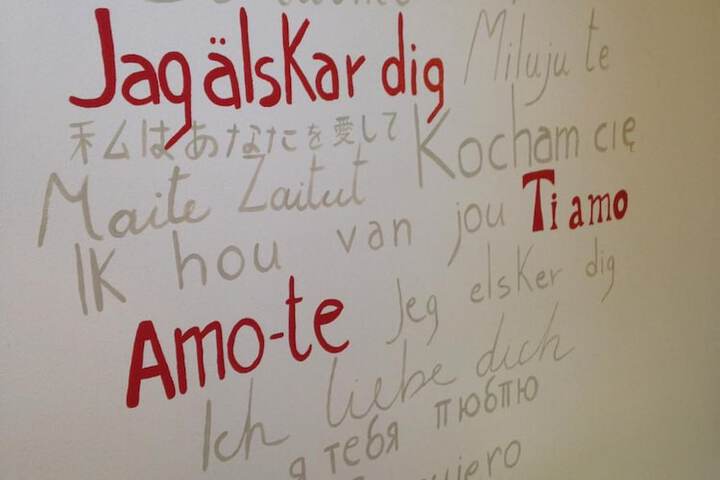 Jag älskar dig
Miluju te
私はあなたを愛して
Kocham cię
Maite Zaitut
Ik hou van jou
Ti amo
Amo-te
Jeg elsker dig
Ich liebe dich
я тебя люблю